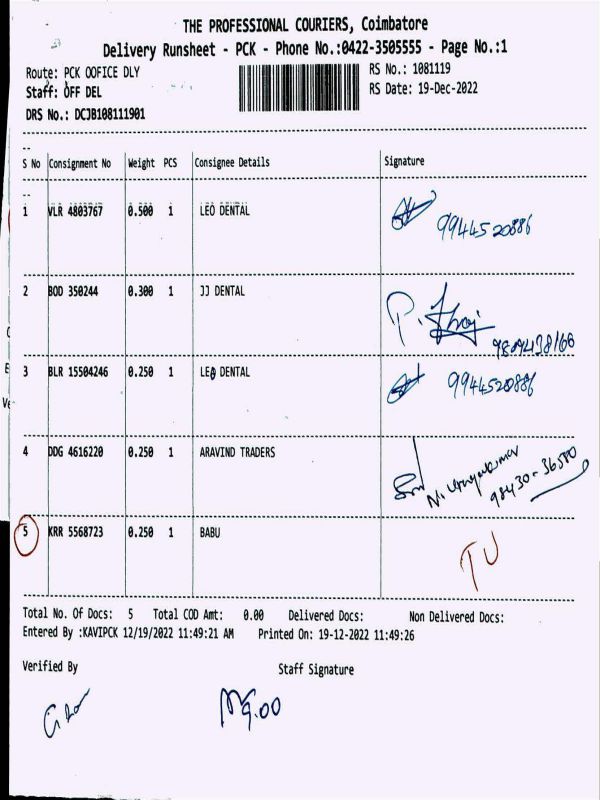 THE PROFESSIONAL COURIERS, Coimbatore
Delivery Runsheet - PCK - Phone No.:0422-3505555 - Page No.:1
Route: PCK OOFICE DLY
RS No.: 1081119
Staff: OFF DEL
RS Date: 19-Dec-2022
DRS No.: DCJB108111901
S No Consignment No Weight PCS Consignee Details Signature
1 VLR 4803767 0.500 1 LEO DENTAL
9944520886
2 BOD 350244 0.300 1 JJ DENTAL
3 BLR 15504246 0.250 1 LEO DENTAL
9944520886
4 DDG 4616220 0.250 1 ARAVIND TRADERS
98430-36580
5 KRR 5568723 0.250 1 BABU
Total No. Of Docs: 5 Total COD Amt: 0.00 Delivered Docs: Non Delivered Docs:
Entered By :KAVIPCK 12/19/2022 11:49:21 AM Printed On: 19-12-2022 11:49:26
Verified By Staff Signature